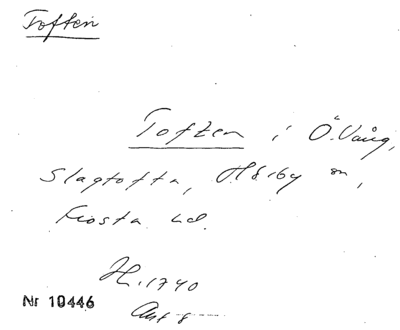 Toften
Toften i Ö. Vång,
Slagtofta, Hörby sn,
Frosta hd.
H. 1740
Nr 10446
Akt 8